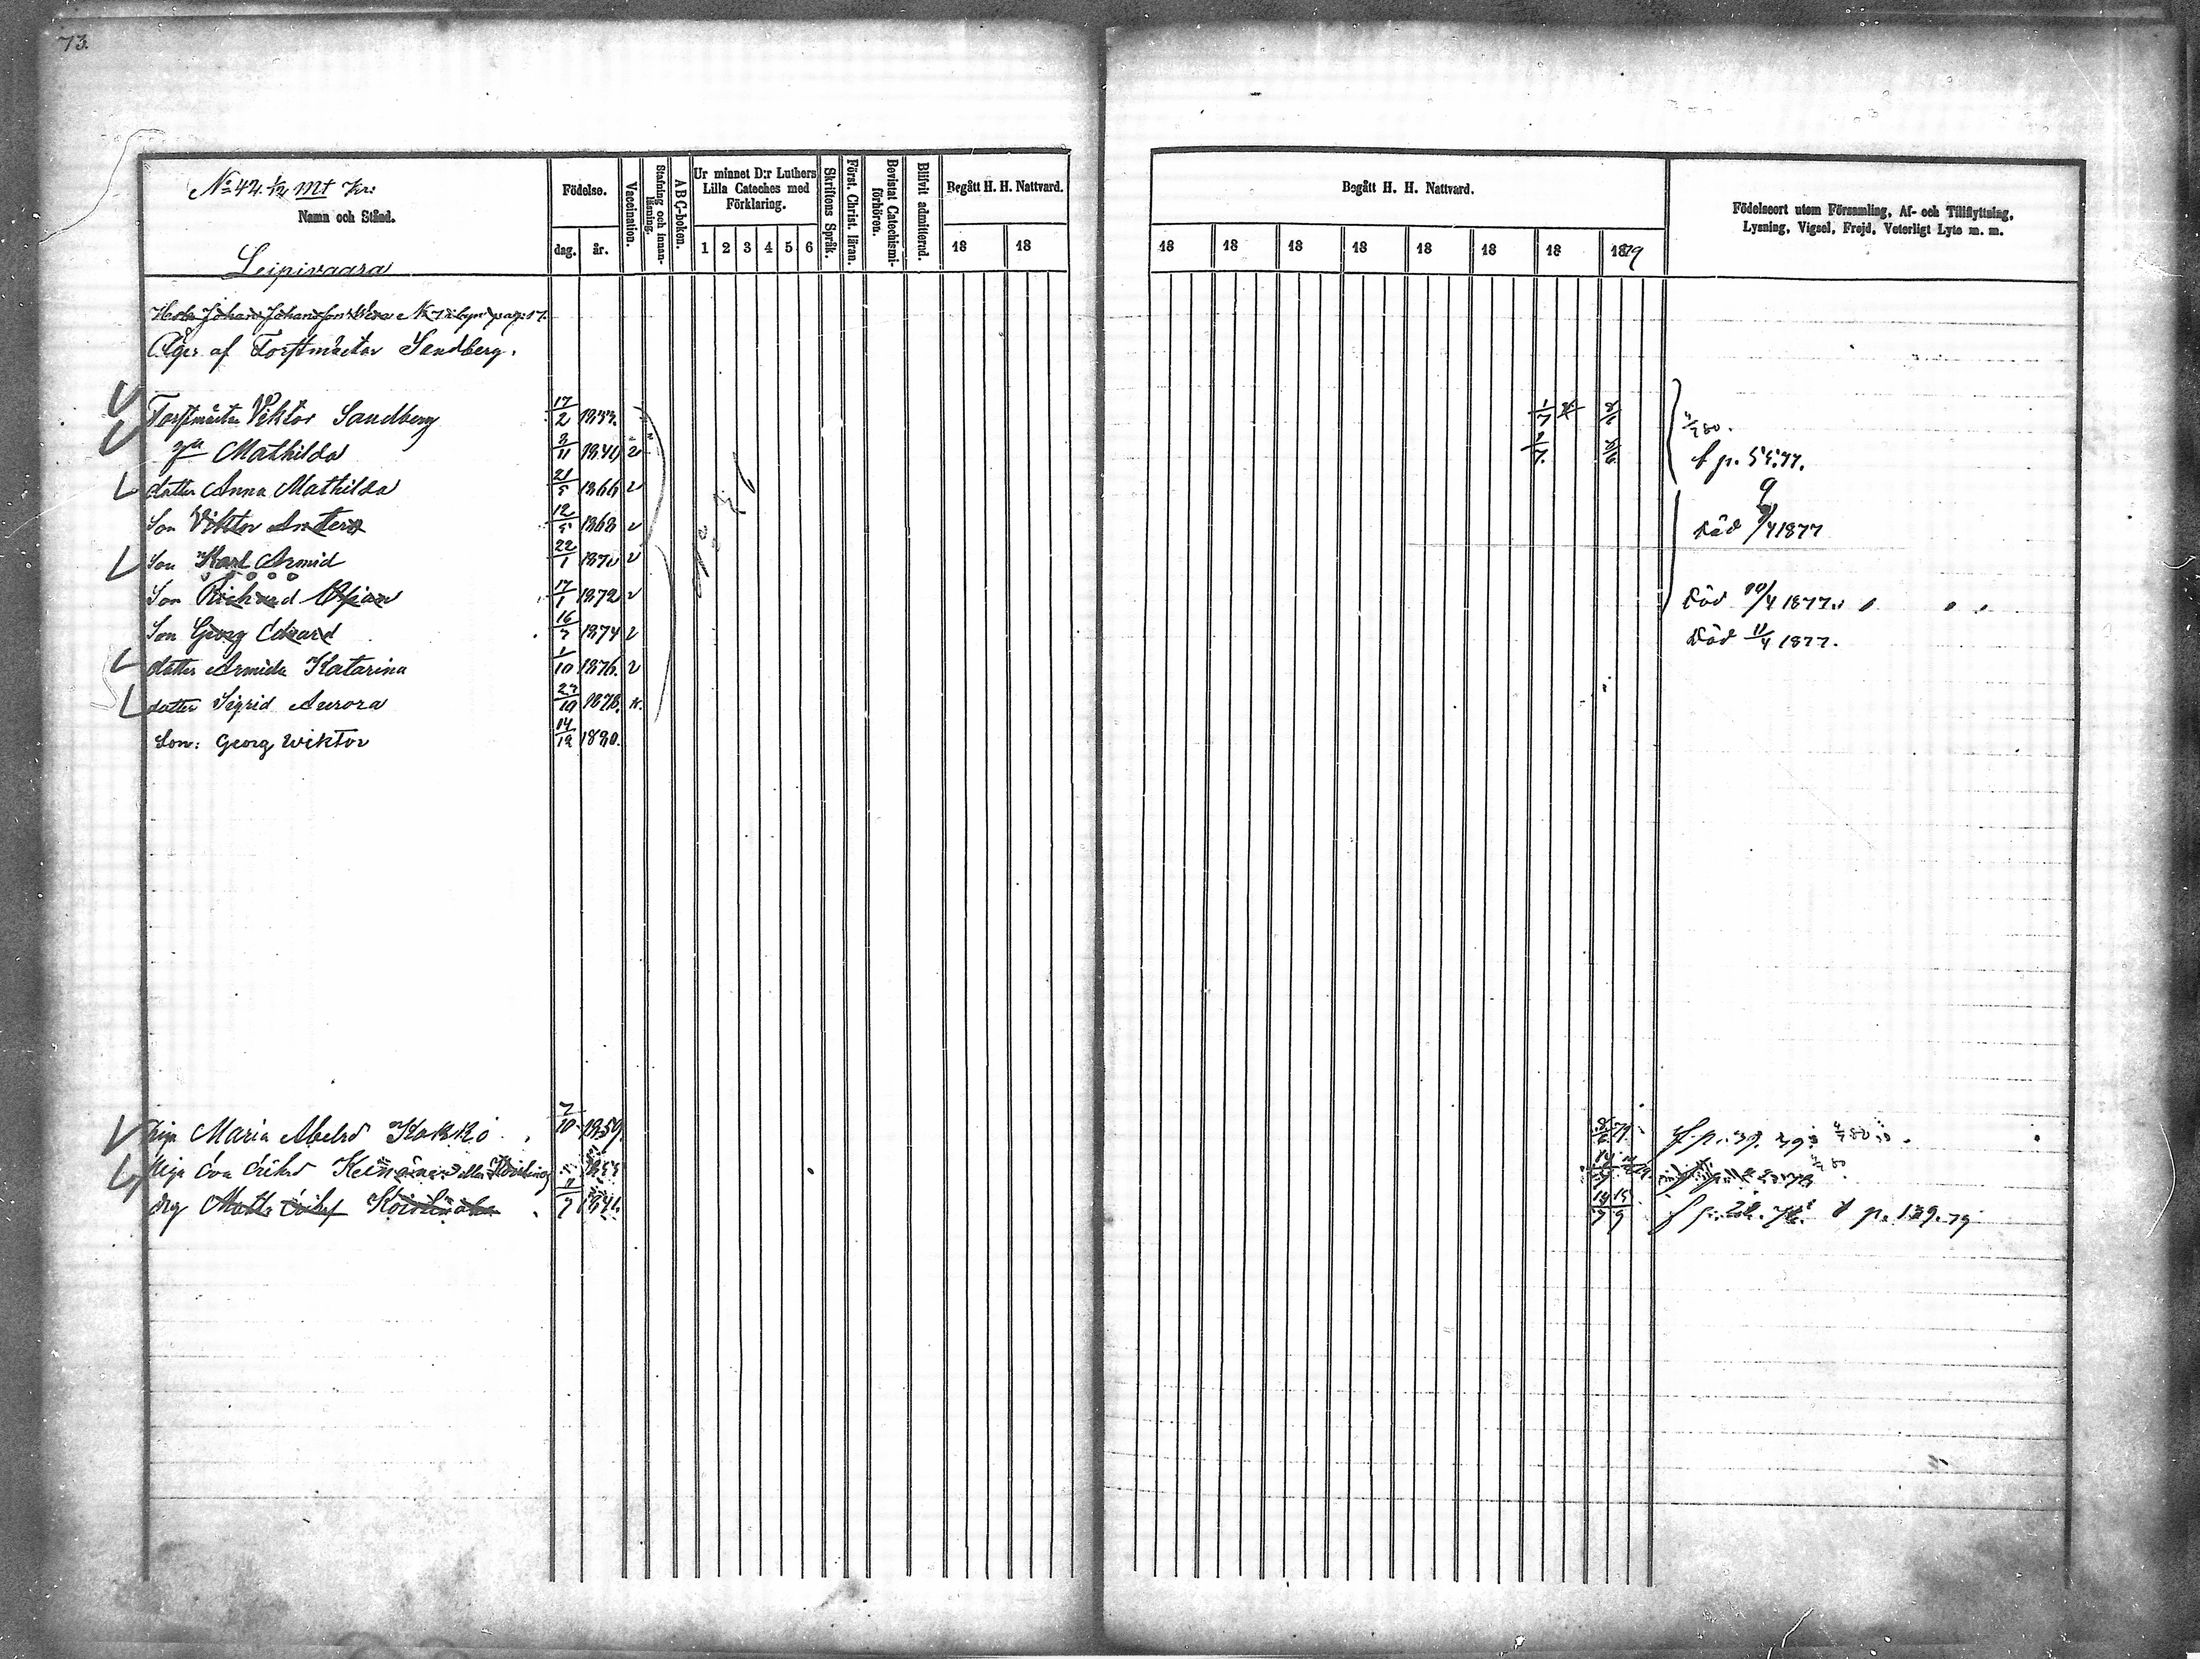 73.
No 42. 1/12 mt Kr:
Namn och Stånd.
Födelse.
dag. år.
Vaccination.
Stafning och innanläsning.
A B C-boken.
Ur minnet D:r Luthers Lilla Cateches med Förklaring.
1 2 3 4 5 6
Skriftens Språk.
Först. Christ. läran.
Bevistat Catechismiförhören.
Blifvit admitterad.
Begått H. H. Nattvard.
18 18
Begått H. H. Nattvard.
18 18 18 18 18 18 18 1879
Födelseort utom Församling, Af- och Tillflyttning, Lysning, Vigsel, Frejd, Veterligt Lyte m. m.
Leipivaara
Johan Johansson
Äges af Forstmästar Sandberg.
Forstmäster Viktor Sandberg 17/2 1833. 1/7 8/6
Mathilda 3/11 1840 v 1/7 f p. 55.77.
dotter Anna Mathilda 21/5 1866 v
Son Viktor Anders 12/5 1868 v Död 9/4 1877
Son Karl Armid 22/1 1870 v
Son Richard 17/1 1872 v Död 10/4 1877.
Son Georg Edvard 16/7 1874 v Död 11/4 1877.
dotter Armida Katarina 1/10 1876. v
dotter Sigrid Aurora 27/10 1878.
Son: Georg Wiktor 14/12 1880.
Piga Maria Abelsd Kokko 7/10 1859. f. p. 39.
Piga Eva Eriksd Keinänen eller
drg Matts 11/7 f p. 28. p. 139. 79